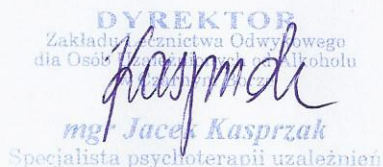 DYREKTOR
Zakładu Lecznictwa Odwykowego
dla Osób Uzależnionych od Alkoholu
Kasprzak
mgr Jacek Kasprzak
Specjalista psychoterapii uzależnień